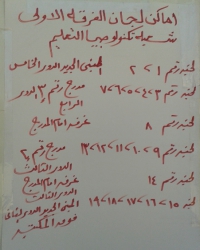 اماكن لجان الفرقه الاولى
شعبة تكنولوجيا التعليم
لجنه رقم ١ ، ٢ المبنى الجديد الدور الخامس
لجنه رقم ٣،٤،٥،٦،٧ مدرج رقم ٣ الدور الرابع
لجنه رقم ٨ غرفه امام المدرج
لجنه رقم ٩،١٠،١١،١٢،١٣ مدرج رقم ٢ الدور الثالث
لجنه رقم ١٤ غرفه امام المدرج الدور الثالث
لجنه ١٥،١٦،١٧،١٨،١٩ المبنى الجديد الدور